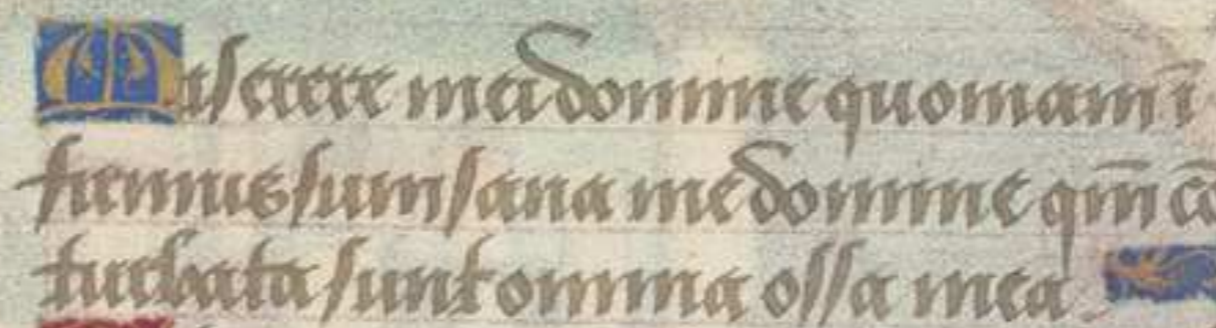 Miserere mei domine quoniam ī
firmus sum sana me domine qm̄ cō
turbata sunt omnia ossa mea